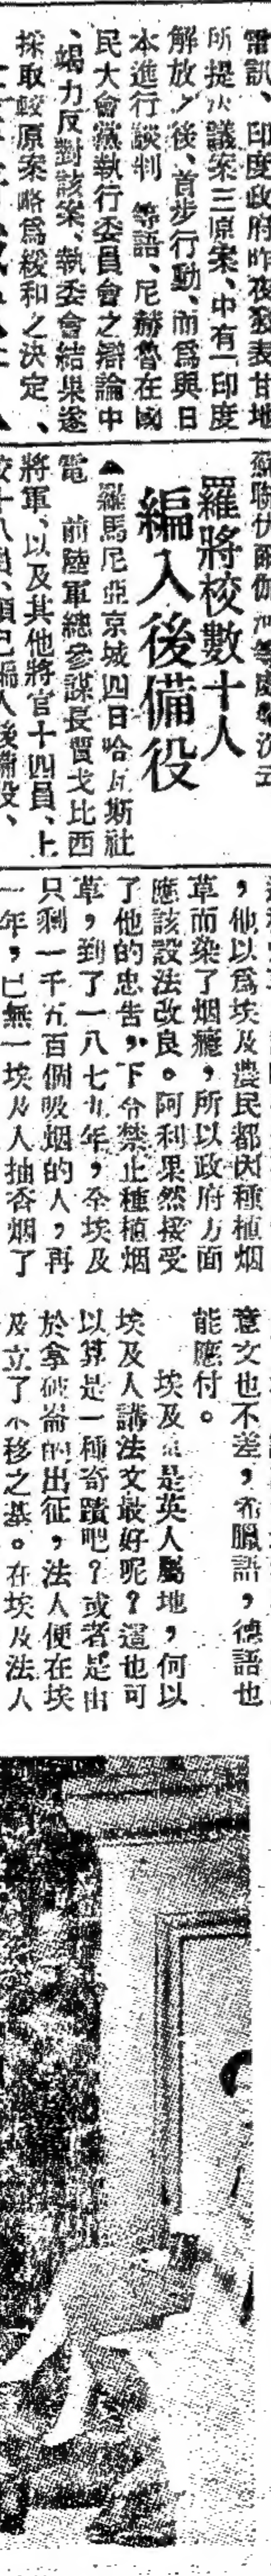 電訊、印度政府昨夜發表甘地
所提議案三原案、中有一印度
解放ノ後、首步行動、而爲與日
本進行談判 等語、尼赫魯在國
民大會黨執行委員會之辯論中
、竭力反對該案、執委會結果遂
採取較原案略爲緩和之決定、
羅將校數十人
編入後備役
▲羅馬尼亞京城四日哈瓦斯社
電 前陸軍總參謀長賈戈比西
將軍、以及其他將官十四員、上
，他以爲埃及農民都因種植烟
草而染了烟癮，所以政府方面
應該設法改良。阿利果然接受
了他的忠告，下令禁止種植烟
草，到了一八七九年，全埃及
只剩一千九百個吸烟的人，再
一年，已無一埃及人抽香烟了
意文也不差，希臘語，德語也
能應付。
埃及是英人屬地，何以
埃及人講法文最好呢？這也可
以算是一種奇蹟吧？或者是由
於拿破崙的出征，法人便在埃
及立了不移之基。在埃及法人